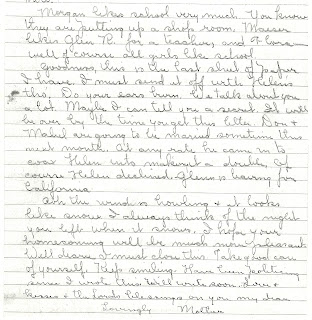 Morgan likes school very much. You know
they are putting up a shop room. Maeser
likes Glen H. for a teacher, and
well of course all girls like school.
Goodness, this is the last sheet of paper
I have. I must send it off with Helen's
tho. Do your ears burn. We talk about you
a lot. Maybe I can tell you a secret. It will
be over by the time you get this letter. Don &
Mabel are going to be married sometime this
next month. At any rate he came in to
coax Helen into makeing it a double. Of
course Helen declined. Glenn is leaving for
California
Oh the wind is howling & it looks
like snow. I always think of the night
you left when it snows. I hope your
homecoming will be much more pleasant.
Well dear I must close this. Take good care
of yourself. Keep smiling. Have been
since I wrote this. Will write soon. Love &
kisses & the Lords blessings on you my dear
Lovingly Mother